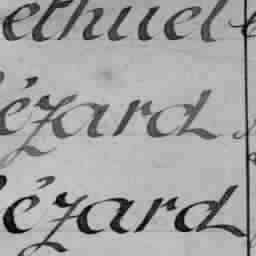 ethuel
ézard
ézard